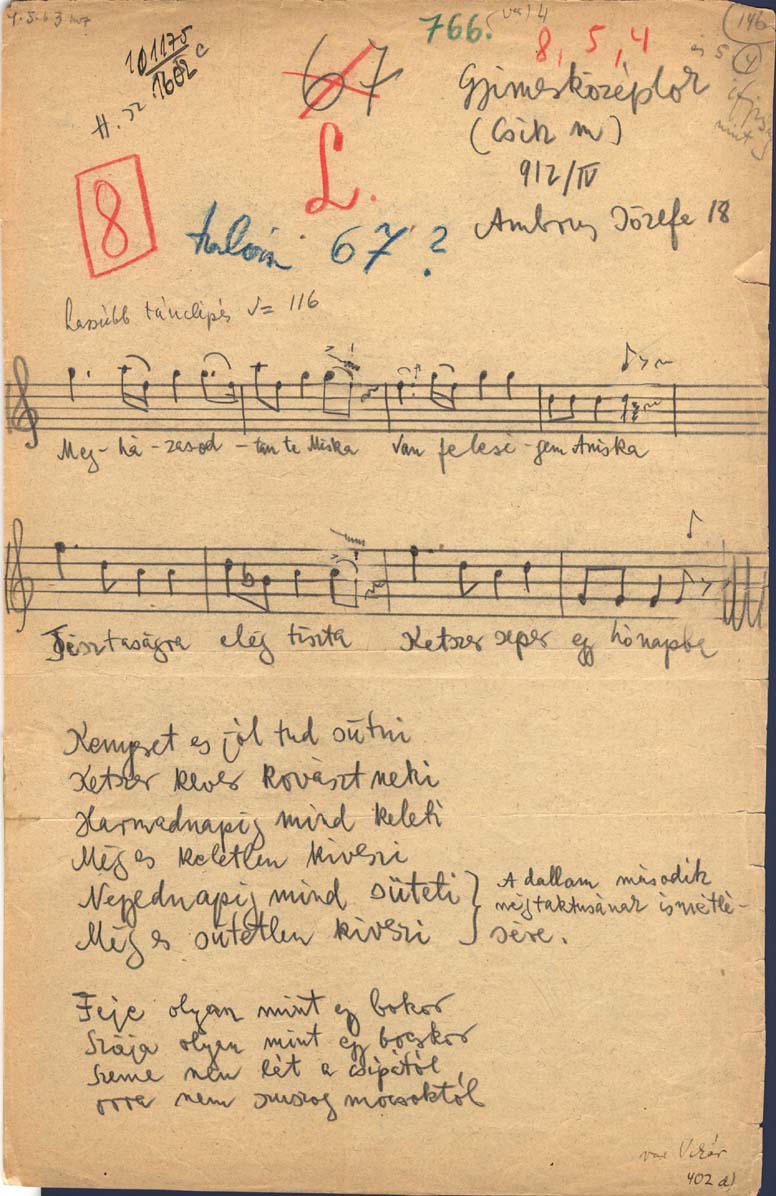 766. (var) 4
146
8, 5, 4
101175
1602 c
H. 32
67
L.
8
talán 67?
Gyimesközéplok
(Csík m)
912/IV
Ambrus Józefe 18
lassúbb tánclépés ♪= 116
Meg-há-zasod-tan te Miska Van felesi-gem Aniska
Tisztaságra elég tiszta Ketszer seper egy hónapba
Kenyeret es jól tud sütni
Ketszer kever kovászt neki
Harmadnapig mind keleti
Még es keletlen kiveszi
Negyednapig mind süteti
Még es sütetlen kiveszi
A dallam második
négytaktusának ismétlé-
sére.
Feje olyan mint egy bokor
Szája olyan mint egy bocskor
Szeme nem lét a csipától
orra nem szuszog mocsoktól
var Vikár
402 d)